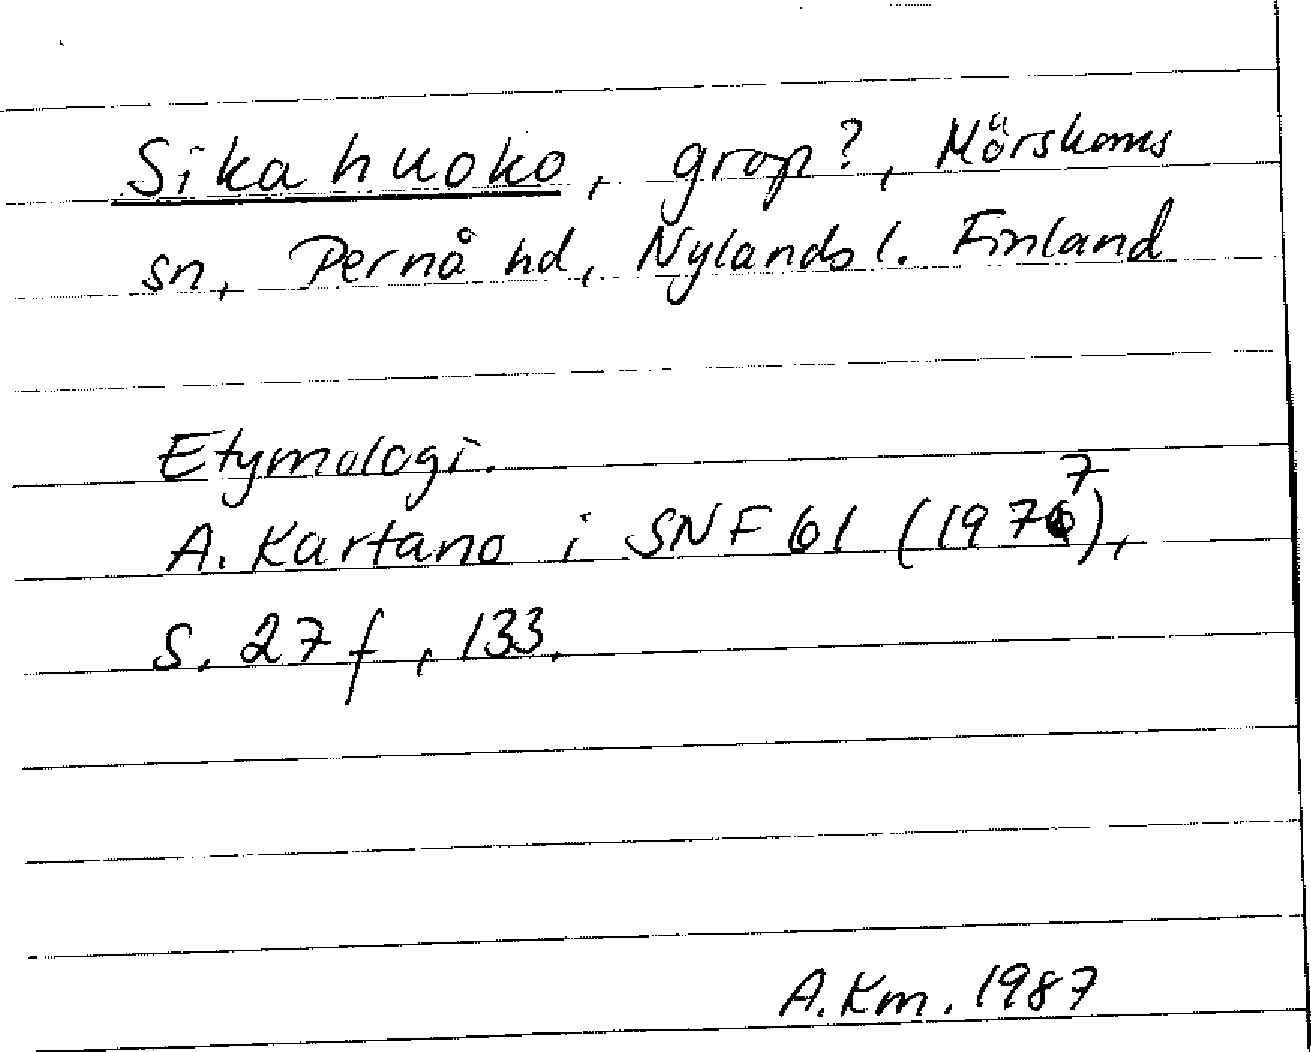 Sikahuoko, grop?, Mörskoms
sn, Pernå hd, Nylands l. Finland
Etymologi.
A. Kartano i SNF 61 (1977),
S. 27 f, 133.
A. Km. 1987